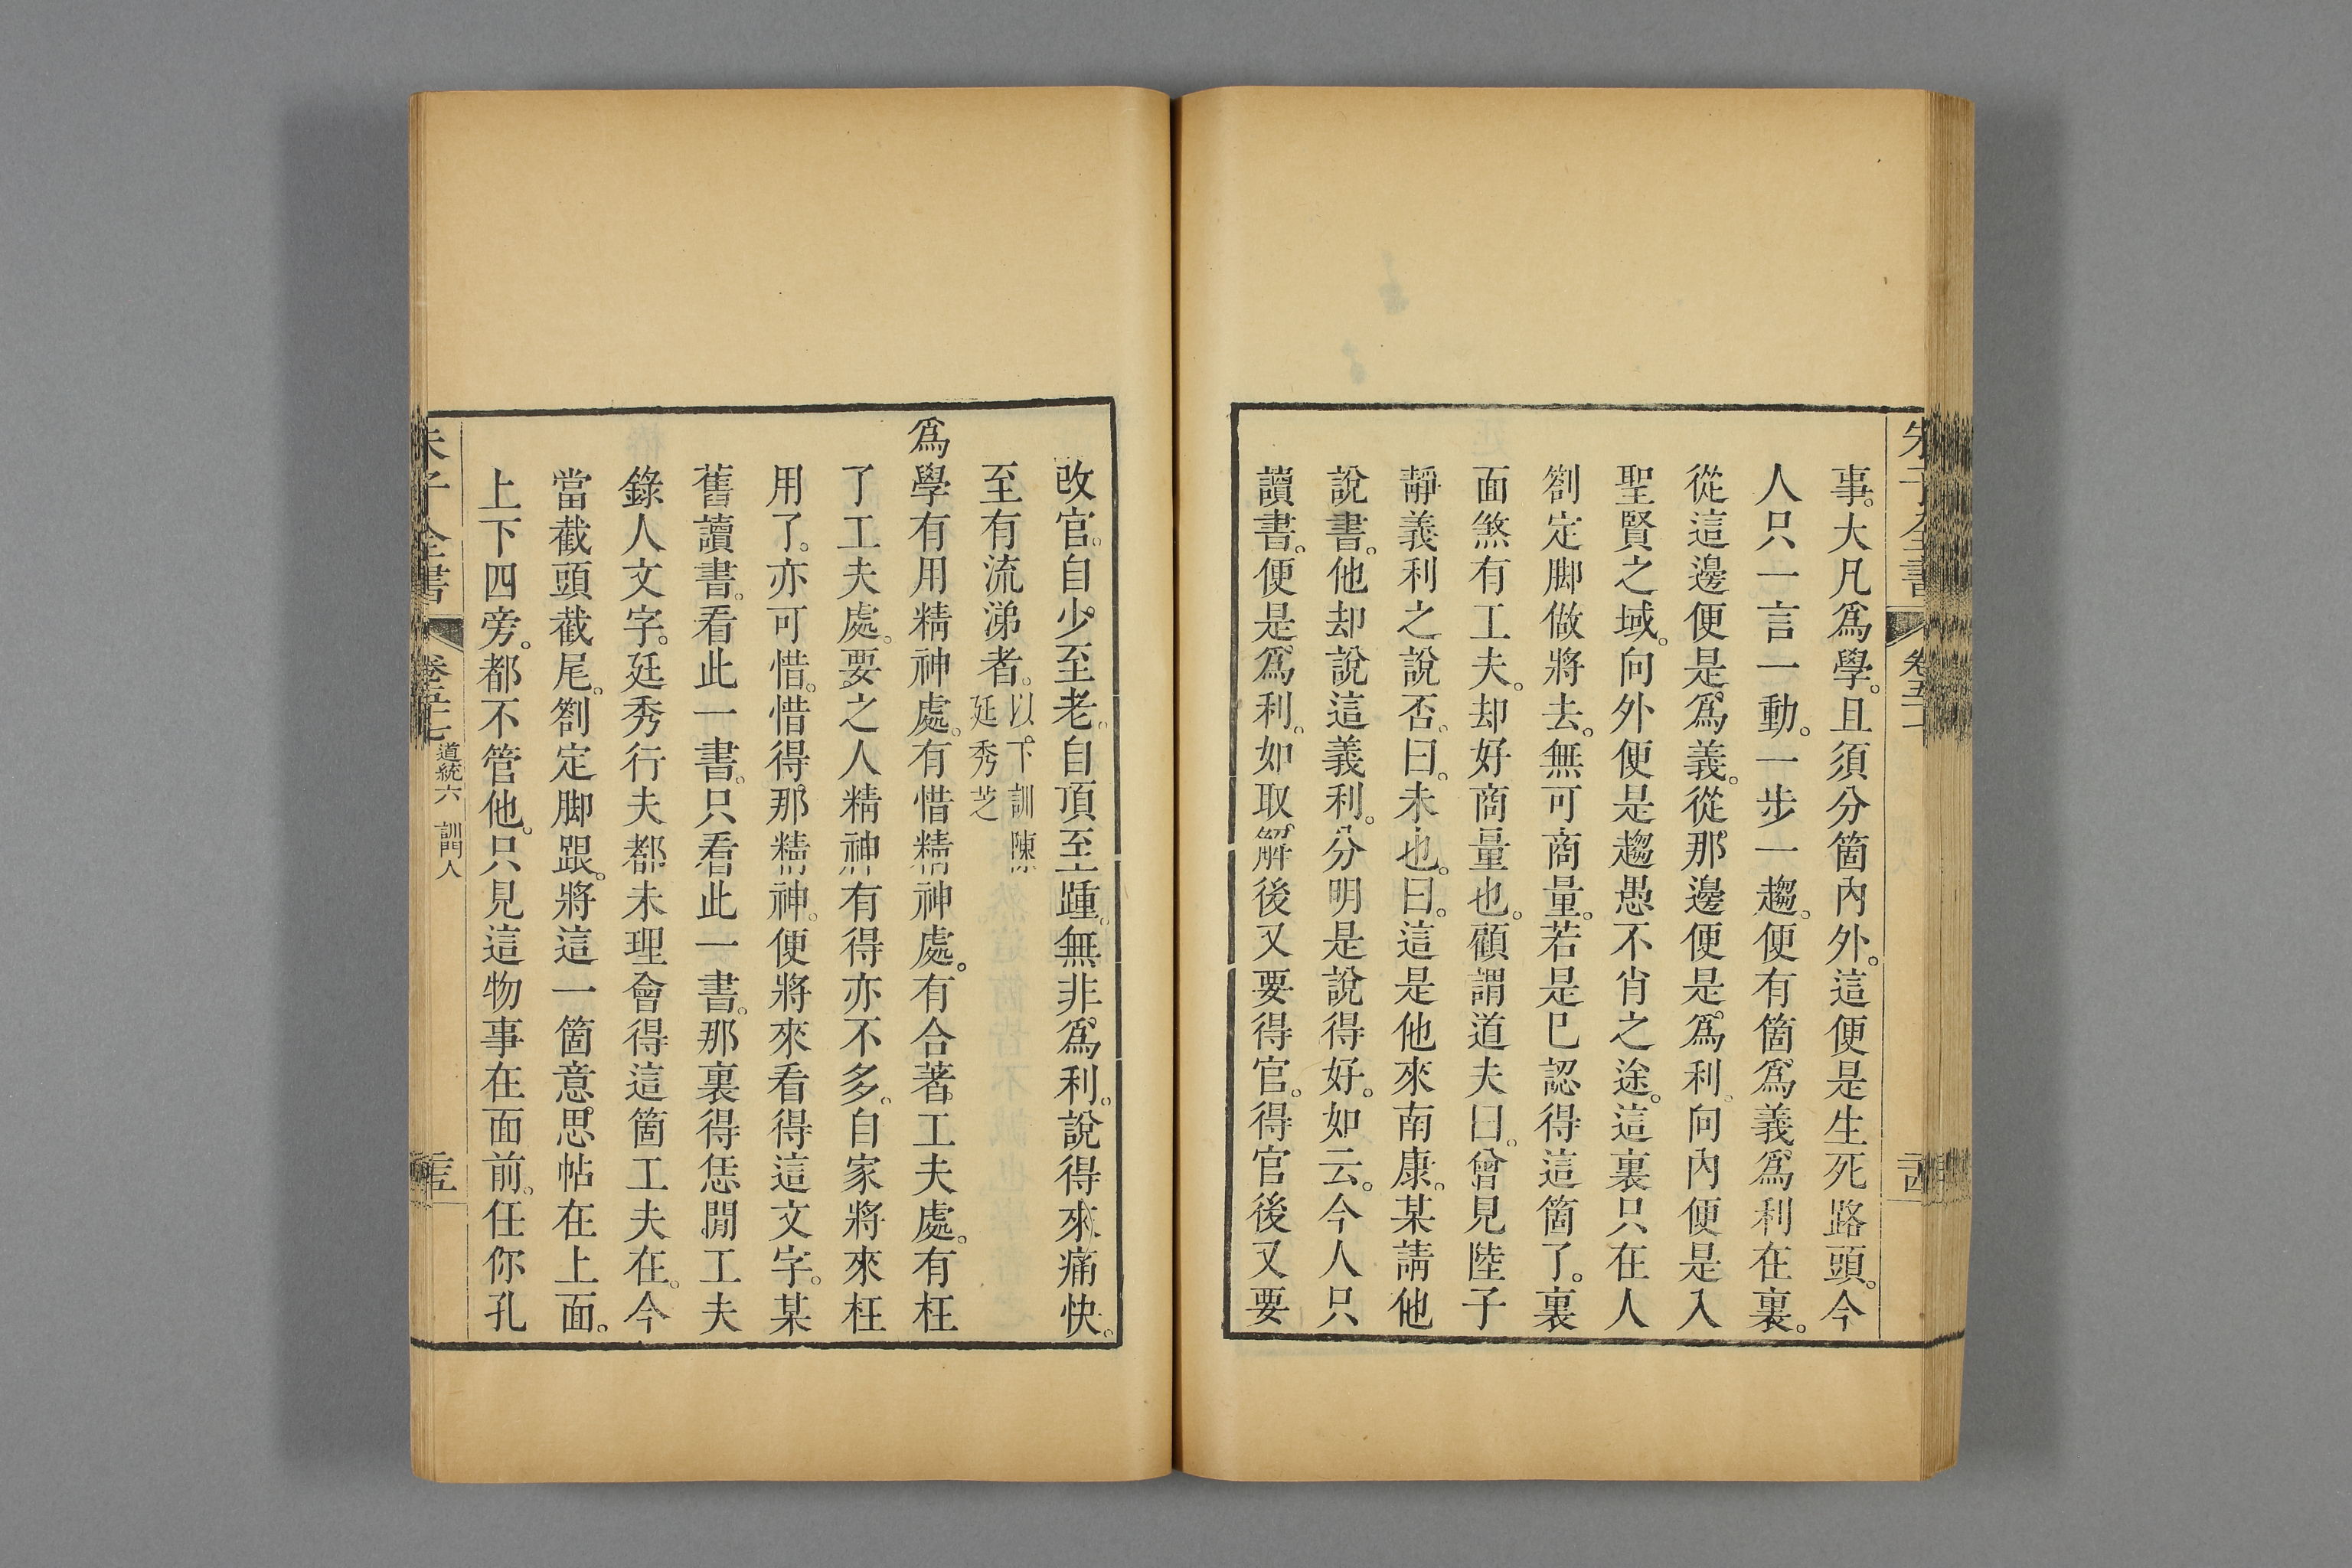 朱子全書
卷五十七
事。大凡爲學。且須分箇內外。這便是生死路頭。今
人只一言一動。一步一趨。便有箇爲義爲利在裏。
從這邊便是爲義。從那邊便是爲利。向內便是入
聖賢之域。向外便是趨愚不肖之途。這裏只在人
劄定脚做將去。無可商量。若是已認得這箇了。裏
面煞有工夫。却好商量也。顧謂道夫曰。曾見陸子
靜義利之說否。曰。未也。曰。這是他來南康。某請他
說書。他却說這義利。分明是說得好。如云。今人只
讀書。便是爲利。如取解後又要得官。得官後又要
改官。自少至老。自頂至踵。無非爲利。說得來痛快。
至有流涕者。以下訓陳廷秀芝
爲學有用精神處。有惜精神處。有合著工夫處。有枉
了工夫處。要之人精神有得亦不多。自家將來枉
用了。亦可惜。惜得那精神。便將來看得這文字。某
舊讀書。看此一書。只看此一書。那裏得恁閒工夫
錄人文字。廷秀行夫都未理會得這箇工夫在。今
當截頭截尾。劄定脚跟。將這一箇意思帖在上面。
上下四旁。都不管他。只見這物事在面前。任你孔
朱子全書
卷五十七
道統六 訓門人